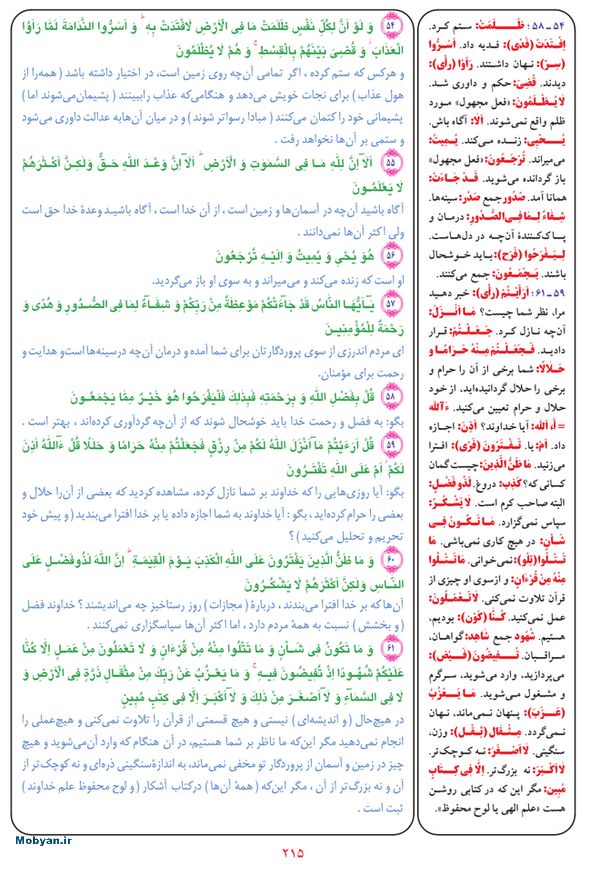 ۵۴ وَ لَوْ أَنَّ لِكُلِّ نَفْسٍ ظَلَمَتْ مَا فِی الْأَرْضِ لَافْتَدَتْ بِهِ ۗ وَ أَسَرُّوا النَّدَامَةَ لَمَّا رَأَوُا
الْعَذَابَ ۖ وَ قُضِیَ بَیْنَهُمْ بِالْقِسْطِ ۚ وَ هُمْ لَا یُظْلَمُونَ
و هرکس که ستم کرده ، اگر تمامی آن‌چه روی زمین است، در اختیار داشته باشد ( همه‌را از
هول عذاب ) برای نجات خویش می‌دهد و هنگامی‌که عذاب رابینند ( پشیمان‌می‌شوند اما )
پشیمانی خود را کتمان می‌کنند ( مبادا رسواتر شوند ) و در میان آن‌هابه عدالت داوری می‌شود
و ستمی بر آن‌ها نخواهد رفت .
۵۵ أَلَآ إِنَّ لِلَّهِ مَا فِی السَّمٰوٰتِ وَ الْأَرْضِ ۗ أَلَآ إِنَّ وَعْدَ اللَّهِ حَقٌّ وَلٰكِنَّ أَكْثَرَهُمْ
لَا یَعْلَمُونَ
آگاه باشید آن‌چه در آسمان‌ها و زمین است ، از آن خدا است ، آگاه باشیـد وعدهٔ خدا حق است
ولی اکثر آن‌ها نمی‌دانند .
۵۶ هُوَ یُحْیِ وَ یُمِیتُ وَ إِلَیْهِ تُرْجَعُونَ
او است که زنده می‌کند و می‌میراند و به سوی او باز می‌گردید.
۵۷ یَٰٓأَیُّهَا النَّاسُ قَدْ جَآءَتْكُمْ مَوْعِظَةٌ مِنْ رَبِّكُمْ وَ شِفَآءٌ لِمَا فِی الصُّدُورِ وَ هُدًی وَ
رَحْمَةٌ لِلْمُؤْمِنِینَ
ای مردم اندرزی از سوی پروردگارتان برای شما آمده و درمان آن‌چه درسینه‌ها‌است‌و هدایت و
رحمت برای مؤمنان.
۵۸ قُلْ بِفَضْلِ اللَّهِ وَ بِرَحْمَتِهِ فَبِذٰلِكَ فَلْیَفْرَحُوا هُوَ خَیْرٌ مِمَّا یَجْمَعُونَ
بگو: به فضل و رحمت خدا باید خوشحال شوند که از آن‌چه گردآوری کرده‌اند ، بهتر است .
۵۹ قُلْ أَرَءَیْتُمْ مَآ أَنْزَلَ اللَّهُ لَكُمْ مِنْ رِزْقٍ فَجَعَلْتُمْ مِنْهُ حَرَامًا وَ حَلٰلًا قُلْ ءَآللَّهُ أَذِنَ
لَكُمْ ۖ أَمْ عَلَی اللَّهِ تَفْتَرُونَ
بگو: آیا روزی‌هایی را که خداوند بر شما نازل کرده، مشاهده کردید که بعضی از آن‌را حلال و
بعضی را حرام کرده‌اید ، بگو : آیا خداوند به شما اجازه داده یا بر خدا افترا می‌بندید ( و پیش خود
تحریم و تحلیل می‌کنید ) ؟
۶۰ وَ مَا ظَنُّ الَّذِینَ یَفْتَرُونَ عَلَی اللَّهِ الْكَذِبَ یَوْمَ الْقِیٰمَةِ ۗ إِنَّ اللَّهَ لَذُو فَضْلٍ عَلَی
النَّاسِ وَلٰكِنَّ أَكْثَرَهُمْ لَا یَشْكُرُونَ
آن‌ها که بر خدا افترا می‌بندند ، دربارهٔ ( مجازات ) روز رستاخیز چه می‌اندیشند ؟ خداوند فضل
( و بخشش ) نسبت به همهٔ مردم دارد ، اما اکثر آن‌ها سپاسگزاری نمی‌کنند .
۶۱ وَ مَا تَكُونُ فِی شَأْنٍ وَ مَا تَتْلُوا مِنْهُ مِنْ قُرْءَانٍ وَ لَا تَعْمَلُونَ مِنْ عَمَلٍ إِلَّا كُنَّا
عَلَیْكُمْ شُهُودًا إِذْ تُفِیضُونَ فِیهِ ۚ وَ مَا یَعْزُبُ عَنْ رَبِّكَ مِنْ مِثْقَالِ ذَرَّةٍ فِی الْأَرْضِ وَ
لَا فِی السَّمَآءِ وَ لَآ أَصْغَرَ مِنْ ذٰلِكَ وَ لَآ أَكْبَرَ إِلَّا فِی كِتٰبٍ مُبِینٍ
در هیچ‌حال ( و اندیشه‌ای ) نیستی و هیچ قسمتی از قرآن را تلاوت نمی‌کنی و هیچ‌عملی را
انجام نمی‌دهید مگر این‌که ما ناظر بر شما هستیم، در آن هنگام که وارد آن‌می‌شوید و هیچ
چیز در زمین و آسمان از پروردگار تو مخفی نمی‌ماند، به اندازهٔ‌سنگینی ذره‌ای و نه کوچک‌تر از
آن و نه بزرگ‌تر از آن ، مگر این‌که ( همهٔ آن‌ها ) درکتاب آشکار ( و لوح محفوظ علم خداوند )
ثبت است .
۵۴ ـ ۵۸ : ظَـــلَمَتْ: ستم کرد.
اِفْتَدَتْ (فَدَیَ): فدیه داد. أَسَرُّوا
(سِرّ): نهان داشتند. رَأَوْا (رأی):
دیدند. قُضِیَ: حکم و داوری شد.
لَا یُظْلَمُونَ: «فعل مجهول» مورد
ظلم واقع نمی‌شوند. أَلَا: آگاه باش.
یُحْیِی: زنده می‌کند. یُمِیتُ:
می‌میراند. تُرْجَعُونَ: «فعل مجهول»
باز گردانده می‌شوید. قَدْ جَاءَتْ:
همانا آمد. صُدُور جمع صَدْر: سینه‌ها.
شِفَاءٌ لِمَا فِی الصُّدُورِ: درمان و
پاک‌کننـدهٔ آن‌چه در دل‌هاست.
لِیَفْرَحُوا (فَرَح): باید خوشحال
باشند. یَجْمَعُونَ: جمع می‌کنند.
۵۹ ـ ۶۱ : أَرَأَیْتُمْ (رأی): خبر دهید
مرا، نظر شما چیست؟ مَا أَنْزَلَ:
آن‌چه نازل کرد. جَعَلْتُمْ: قرار
دادید. فَجَعَلْتُمْ مِنْهُ حَرَامًا وَ
حَلَالًا: شما برخی از آن را حرام و
برخی را حلال گردانیده‌اید، از خود
حلال و حرام تعیین می‌کنید. ءَآللَّه
= أَ، اَللَّه: آیا خداوند؟ أَذِنَ: اجازه
داد. أَمْ: یا. تَفْتَرُونَ (فَرْی): افترا
می‌زنید. مَا ظَنُّ الَّذِینَ: چیست گمان
کسانی که؟ كَذِب: دروغ. لَذُو فَضْلٍ:
البته صاحب کرم است. لَا یَشْكُرُ:
سپاس نمی‌گزارد. مَا تَكُونُ فِی
شَأْنٍ: در هیچ کاری نمی‌باشی. مَا
تَتْلُوا (تِلْو): نمی‌خوانی. مَا تَتْلُوا
مِنْهُ مِنْ قُرْءَانٍ: و از‌سوی او چیزی از
قرآن تلاوت نمی‌کنی. لَا تَعْمَلُونَ:
عمل نمی‌کنید. كُنَّا (كَوْن): بودیم،
هستیم. شُهُود جمع شاهِد: گواهان،
مراقبان. تُفِیضُونَ (فَیْض):
می‌پردازید، وارد می‌شوید، سرگرم
و مشغول می‌شوید. مَا یَعْزُبُ
(عَزْب): پنهان نمی‌ماند، نهان
نمی‌گردد. مِثْقَال (ثِقْل): وزن،
سنگینی. لَا أَصْغَرَ: نه کوچک‌تر.
لَا أَكْبَرَ: نه بزرگ‌تر. إِلَّا فِی كِتَابٍ
مُبِینٍ: مگر این که در کتابی روشن
هست «علم الهی یا لوح محفوظ».
Mobyan.ir
۲۱۵